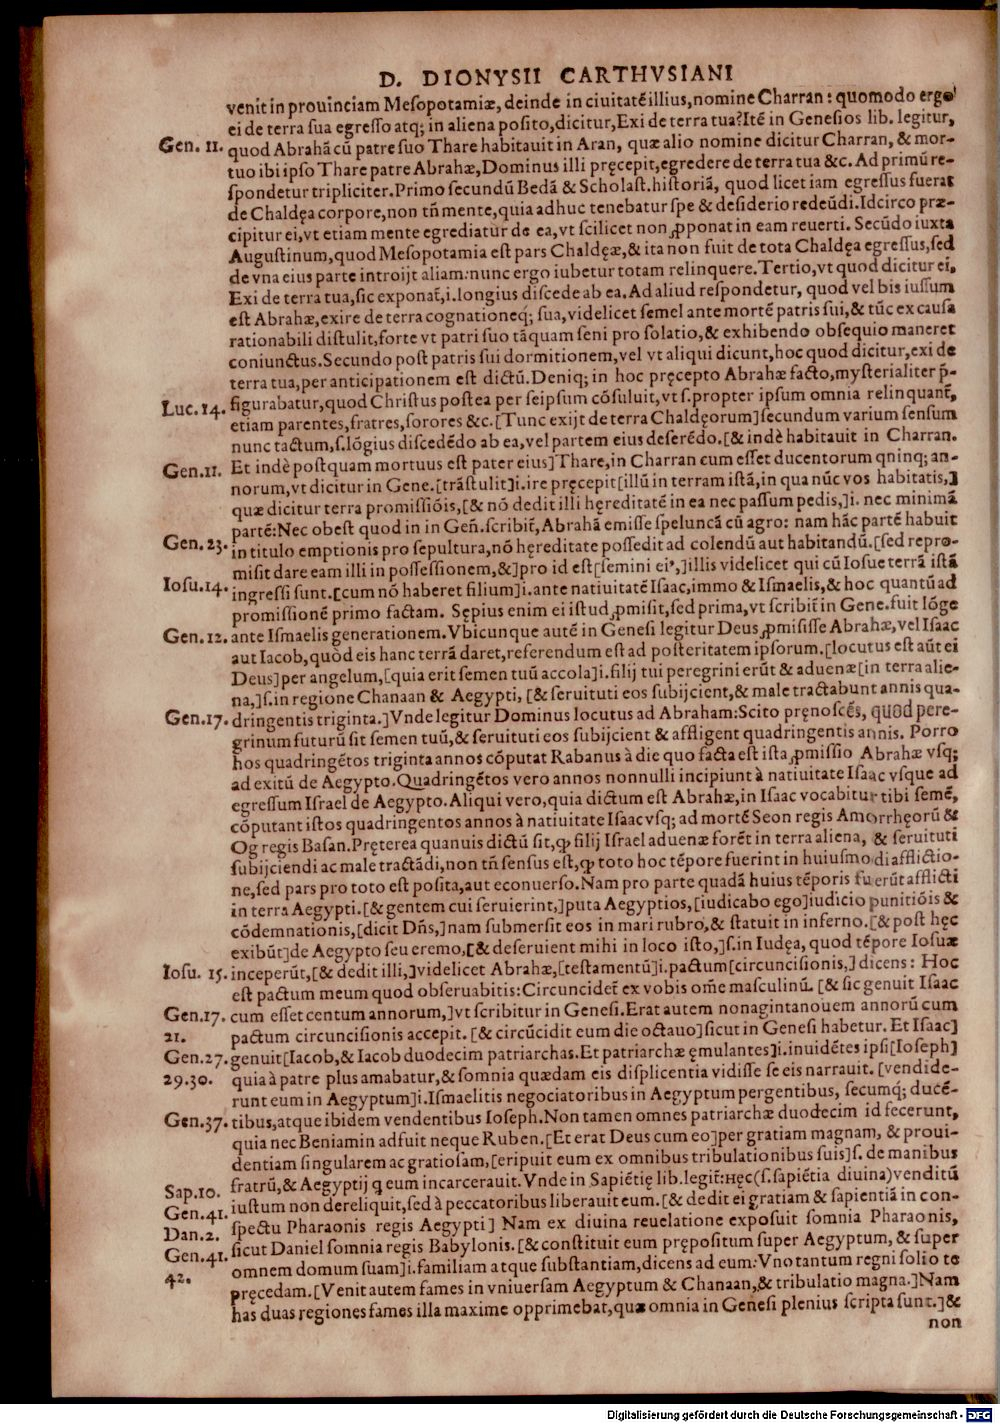 D. DIONYSII CARTHVSIANI
venit in prouinciam Mesopotamiæ, deinde in ciuitatē illius, nomine Charran: quomodo ergo
ei de terra sua egresso atq; in aliena posito, dicitur, Exi de terra tua? Itē in Genesios lib. legitur,
Gen. 11. quod Abrahā cū patre suo Thare habitauit in Aran, quæ alio nomine dicitur Charran, & mor-
tuo ibi ipso Thare patre Abrahæ, Dominus illi pręcepit, egredere de terra tua &c. Ad primū re-
spondetur tripliciter. Primo secundū Bedā & Scholast. historiā, quod licet iam egressus fuerat
de Chaldęa corpore, non tñ mente, quia adhuc tenebatur spe & desiderio redeūdi. Idcirco præ-
cipitur ei, vt etiam mente egrediatur de ea, vt scilicet non ꝓponat in eam reuerti. Secūdo iuxta
Augustinum, quod Mesopotamia est pars Chaldęæ, & ita non fuit de tota Chaldęa egressus, sed
de vna eius parte introijt aliam: nunc ergo iubetur totam relinquere. Tertio, vt quod dicitur ei,
Exi de terra tua, sic exponat̃, i. longius discede ab ea. Ad aliud respondetur, quod vel bis iussum
est Abrahæ, exire de terra cognationeq; sua, videlicet semel ante mortē patris sui, & tūc ex causa
rationabili distulit, forte vt patri suo tāquam seni pro solatio, & exhibendo obsequio maneret
coniunctus. Secundo post patris sui dormitionem, vel vt aliqui dicunt, hoc quod dicitur, exi de
terra tua, per anticipationem est dictū. Deniq; in hoc pręcepto Abrahæ facto, mysterialiter p̄-
Luc. 14. figurabatur, quod Christus postea per seipsum cōsuluit, vt s. propter ipsum omnia relinquant̃,
etiam parentes, fratres, sorores &c. [Tunc exijt de terra Chaldęorum] secundum varium sensum
nunc tactum, s. lōgius discedēdo ab ea, vel partem eius deserēdo. [& indè habitauit in Charran.
Gen. 11. Et indè postquam mortuus est pater eius] Thare, in Charran cum esset ducentorum qninq; an-
norum, vt dicitur in Gene. [trāstulit] i. ire pręcepit [illū in terram istā, in qua nūc vos habitatis,]
quæ dicitur terra promissiōis, [& nō dedit illi hęreditatē in ea nec passum pedis,] i. nec minimā
partē: Nec obest quod in in Geñ. scribit̃, Abrahā emisse speluncā cū agro: nam hāc partē habuit
Gen. 23. in titulo emptionis pro sepultura, nō hęreditate possedit ad colendū aut habitandū. [sed repro-
misit dare eam illi in possessionem, &] pro id est [semini ei⁹,] illis videlicet qui cū Iosue terrā istā
Iosu. 14. ingressi sunt. [cum nō haberet filium] i. ante natiuitatē Isaac, immo & Ismaelis, & hoc quantū ad
promissionē primo factam. Sępius enim ei istud ꝓmisit, sed prima, vt scribit̃ in Gene. fuit lōge
Gen. 12. ante Ismaelis generationem. Vbicunque autē in Genesi legitur Deus ꝓmisisse Abrahæ, vel Isaac
aut Iacob, quòd eis hanc terrā daret, referendum est ad posteritatem ipsorum. [locutus est aūt ei
Deus] per angelum, [quia erit semen tuū accola] i. filij tui peregrini erūt & aduenæ [in terra alie-
na,] s. in regione Chanaan & Aegypti, [& seruituti eos subijcient, & male tractabunt annis qua-
Gen. 17. dringentis triginta.] Vnde legitur Dominus locutus ad Abraham: Scito pręnoscēs, quod pere-
grinum futurū sit semen tuū, & seruituti eos subijcient & affligent quadringentis annis. Porro
hos quadringētos triginta annos cōputat Rabanus à die quo facta est ista ꝓmissio Abrahæ vsq;
ad exitū de Aegypto. Quadringētos vero annos nonnulli incipiunt à natiuitate Isaac vsque ad
egressum Israel de Aegypto. Aliqui vero, quia dictum est Abrahæ, in Isaac vocabitur tibi semē,
cōputant istos quadringentos annos à natiuitate Isaac vsq; ad mortē Seon regis Amorrhęorū &
Og regis Basan. Pręterea quanuis dictū sit, ꝙ filij Israel aduenæ forēt in terra aliena, & seruituti
subijciendi ac male tractādi, non tñ sensus est, ꝙ toto hoc tēpore fuerint in huiusmodi afflictio-
ne, sed pars pro toto est posita, aut econuerso. Nam pro parte quadā huius tēporis fuerūt afflicti
in terra Aegypti. [& gentem cui seruierint,] puta Aegyptios, [iudicabo ego] iudicio punitiōis &
cōdemnationis, [dicit Dñs,] nam submersit eos in mari rubro, & statuit in inferno. [& post hęc
exibūt] de Aegypto seu eremo, [& deseruient mihi in loco isto,] s. in Iudęa, quod tēpore Iosuæ
Iosu. 15. inceperūt, [& dedit illi,] videlicet Abrahæ, [testamentū] i. pactum [circuncisionis,] dicens: Hoc
est pactum meum quod obseruabitis: Circuncidet̃ ex vobis om̄e masculinū. [& sic genuit Isaac
Gen. 17. cum esset centum annorum,] vt scribitur in Genesi. Erat autem nonagintanouem annorū cum
21. pactum circuncisionis accepit. [& circūcidit eum die octauo] sicut in Genesi habetur. Et Isaac]
Gen. 27. genuit [Iacob, & Iacob duodecim patriarchas. Et patriarchæ ęmulantes] i. inuidētes ipsi [Ioseph]
29. 30. quia à patre plus amabatur, & somnia quædam eis displicentia vidisse se eis narrauit. [vendide-
runt eum in Aegyptum] i. Ismaelitis negociatoribus in Aegyptum pergentibus, secumq; ducē-
Gen. 37. tibus, atque ibidem vendentibus Ioseph. Non tamen omnes patriarchæ duodecim id fecerunt,
quia nec Beniamin adfuit neque Ruben. [Et erat Deus cum eo] per gratiam magnam, & proui-
dentiam singularem ac gratiosam, [eripuit eum ex omnibus tribulationibus suis] s. de manibus
Sap. 10. fratrū, & Aegyptij q̨ eum incarcerauit. Vnde in Sapiētię lib. legit̃: hęc (s. sapiētia diuina) venditū
Gen. 41. iustum non dereliquit, sed à peccatoribus liberauit eum. [& dedit ei gratiam & sapientiā in con-
Dan. 2. spectu Pharaonis regis Aegypti] Nam ex diuina reuelatione exposuit somnia Pharaonis,
Gen. 41. sicut Daniel somnia regis Babylonis. [& constituit eum prępositum super Aegyptum, & super
42. omnem domum suam] i. familiam atque substantiam, dicens ad eum: Vno tantum regni solio te
pręcedam. [Venit autem fames in vniuersam Aegyptum & Chanaan, & tribulatio magna.] Nam
has duas regiones fames illa maxime opprimebat, quæ omnia in Genesi plenius scripta sunt.] &
non
Digitalisierung gefördert durch die Deutsche Forschungsgemeinschaft - DFG